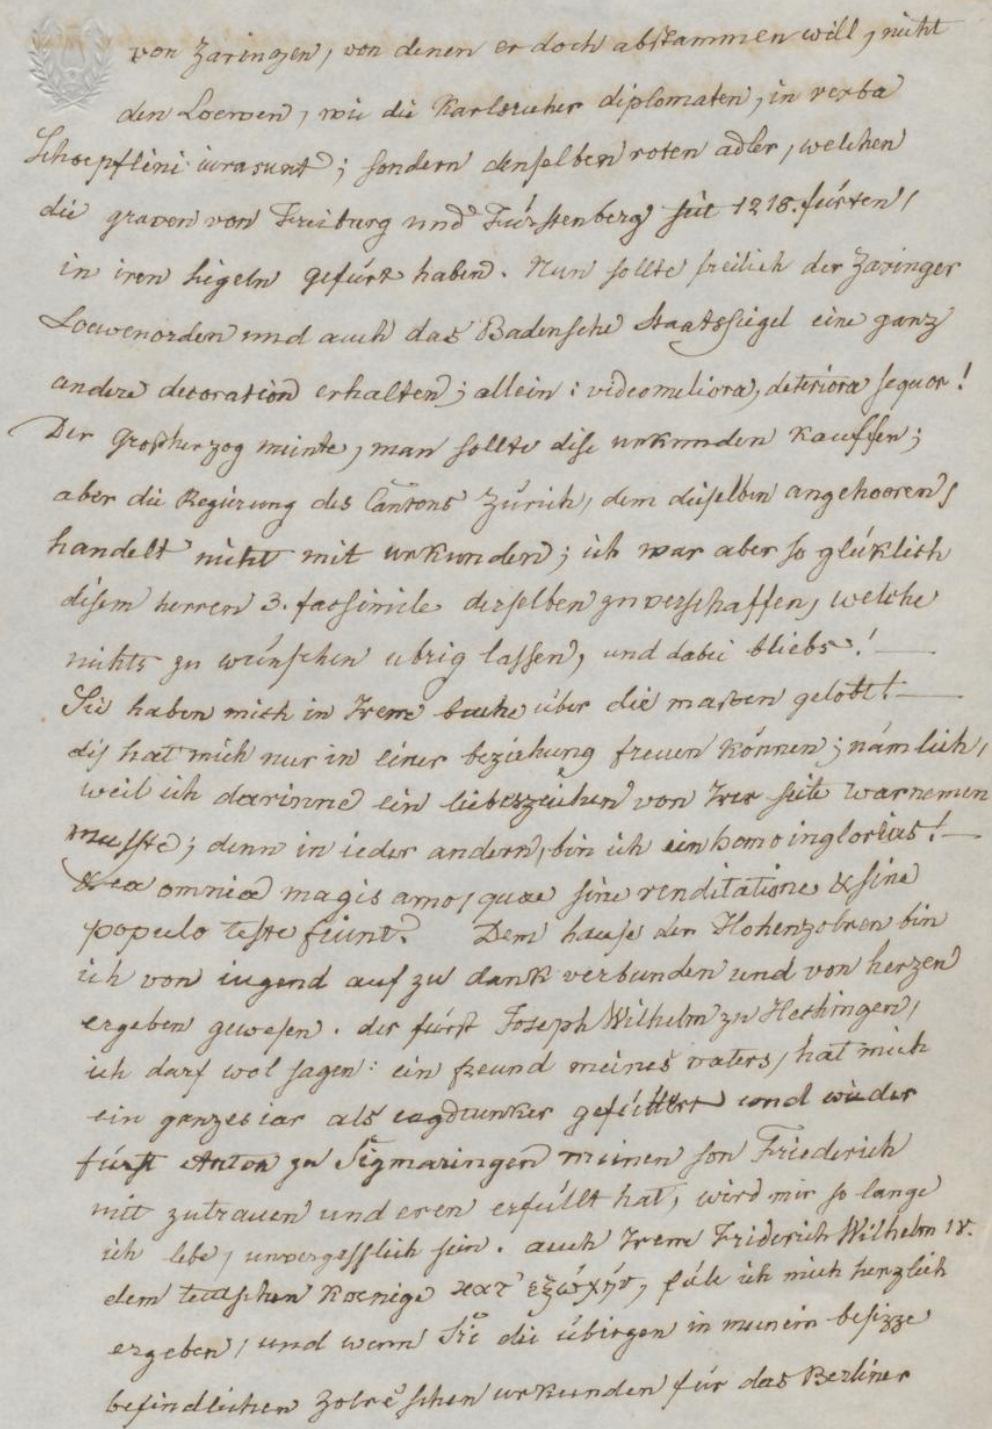 von Zäringen, von denen er doch abstammen will, nicht
den Loewen, wie die Karlsruher diplomaten, in verba
Schoepflini iurarunt; sondern denselben roten adler, welchen
die graven von Freiburg und Fürstenberg seit 1218. fürten,
in iren sigeln gefürt haben. Nun sollte freilich der Zäringer
Loewenorden und auch das Badensche Staatssiegel eine ganz
andere decoration erhalten; allein: video meliora, deteriora sequor!
Der Großherzog meinte, man sollte dise urkunden kauffen;
aber die Regierung des Cantons Zürich, dem dieselben angehooren,
handelt nicht mit urkunden; ich war aber so glüklich
disem herren 3. facsimile derselben zu verschaffen, welche
nichts zu wünschen übrig lassen, und dabei bliebs! —
Sie haben mich in Irem buche über die massen gelobt! —
dis hat mich nur in einer beziehung freuen können; nämlich,
weil ich darinne ein liebeszeichen von Irer seite warnemen
musste; denn in ieder andern, bin ich ein homo inglorius! —
& ea omnia magis amo, quae sine venditatione & sine
populo teste fiunt. Dem hause der Hohenzolren bin
ich von iugend auf zu dank verbunden und von herzen
ergeben gewesen. der fürst Joseph Wilhelm zu Hechingen,
ich darf wol sagen: ein freund meines vaters, hat mich
ein ganzes iar als iagdiunker gefüttert und wie der
fürst Anton zu Sigmaringen meinen son Friederich
mit zutrauen und eren erfüllt hat, wird mir so lange
ich lebe, unvergesslich sein. auch Irem Friderich Wilhelm IV.
dem teutschen Koenige κατ' ἐξωχήν, füle ich mich herzlich
ergeben, und wenn Sie die übirgen in meinem besizze
befindlichen zolre'schen urkunden für das Berliner